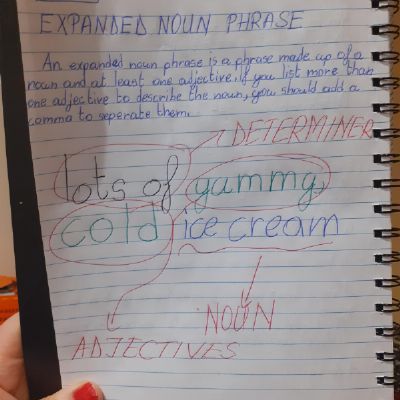 EXPANDED NOUN PHRASE
An expanded noun phrase is a phrase made up of a
noun and at least one adjective. If you list more than
one adjective to describe the noun, you should add a
comma to seperate them.
DETERMINER
lots of yammy,
cold ice cream
NOUN
ADJECTIVES